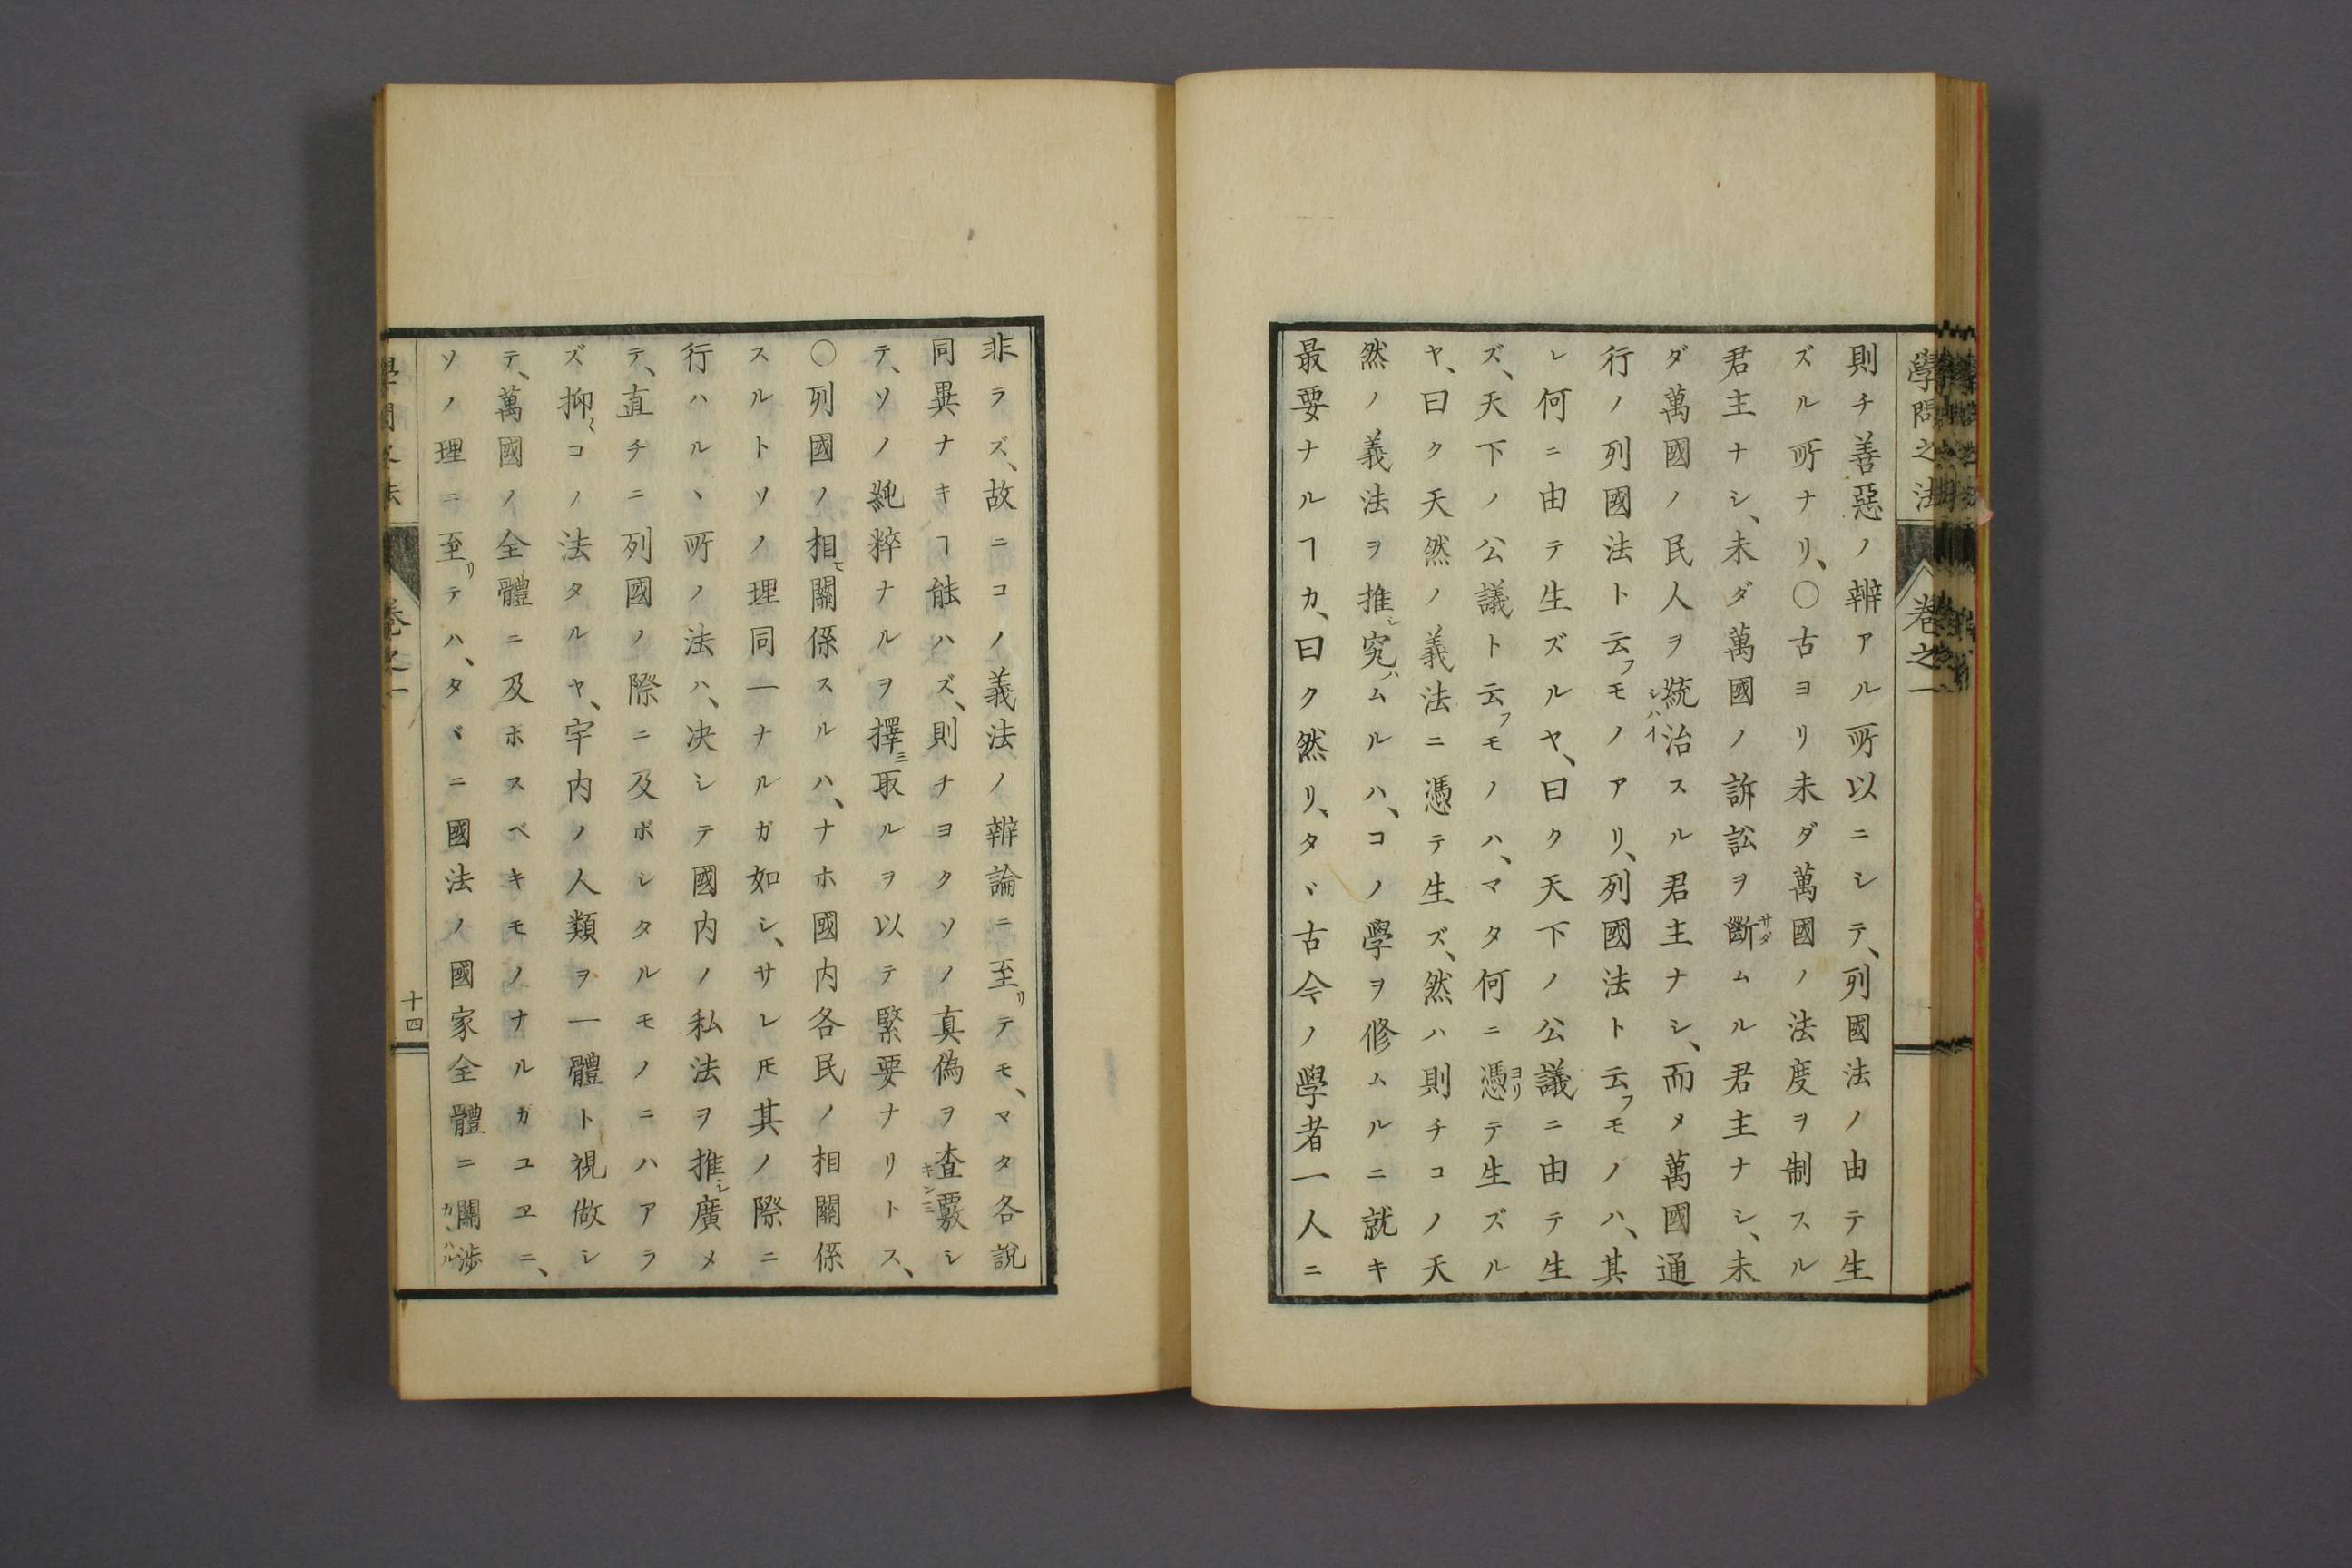 學問之法 卷之一
則チ善惡ノ辨アル所以ニシテ、列國法ノ由テ生
ズル所ナリ、〇古ヨリ未ダ萬國ノ法度ヲ制スル
君主ナシ、未ダ萬國ノ訴訟ヲ斷ムル君主ナシ、未
サダ
ダ萬國ノ民人ヲ統治スル君主ナシ、而メ萬國通
シハイ
行ノ列國法ト云フモノアリ、列國法ト云フモノハ、其
レ何ニ由テ生ズルヤ、曰ク天下ノ公議ニ由テ生
ズ、天下ノ公議ト云フモノハ、マタ何ニ憑テ生ズル
ヨリ
ヤ、曰ク天然ノ義法ニ憑テ生ズ、然ハ則チコノ天
然ノ義法ヲ推シ究ハムルハ、コノ學ヲ修ムルニ就キ
最要ナルヿカ、曰ク然リ、タヾ古今ノ學者一人ニ
非ラズ、故ニコノ義法ノ辨論ニ至リテモ、マタ各說
同異ナキヿ能ハズ、則チヨクソノ真僞ヲ査覈シ
ギンミ
テ、ソノ純粹ナルヲ擇ミ取ルヲ以テ緊要ナリトス、
〇列國ノ相ヒ關係スルハ、ナホ國内各民ノ相關係
スルトソノ理同一ナルガ如シ、サレ𪜈其ノ際ニ
行ハルヽ所ノ法ハ、決シテ國内ノ私法ヲ推シ廣メ
テ、直チニ列國ノ際ニ及ボシタルモノニハアラ
ズ抑〻コノ法タルヤ、宇内ノ人類ヲ一體ト視做シ
テ、萬國ノ全體ニ及ホスベキモノナルガユヱニ、
ソノ理ニ至リテハ、タヾニ國法ノ國家全體ニ關渉
カヽハル
學問之法 卷之一 十四